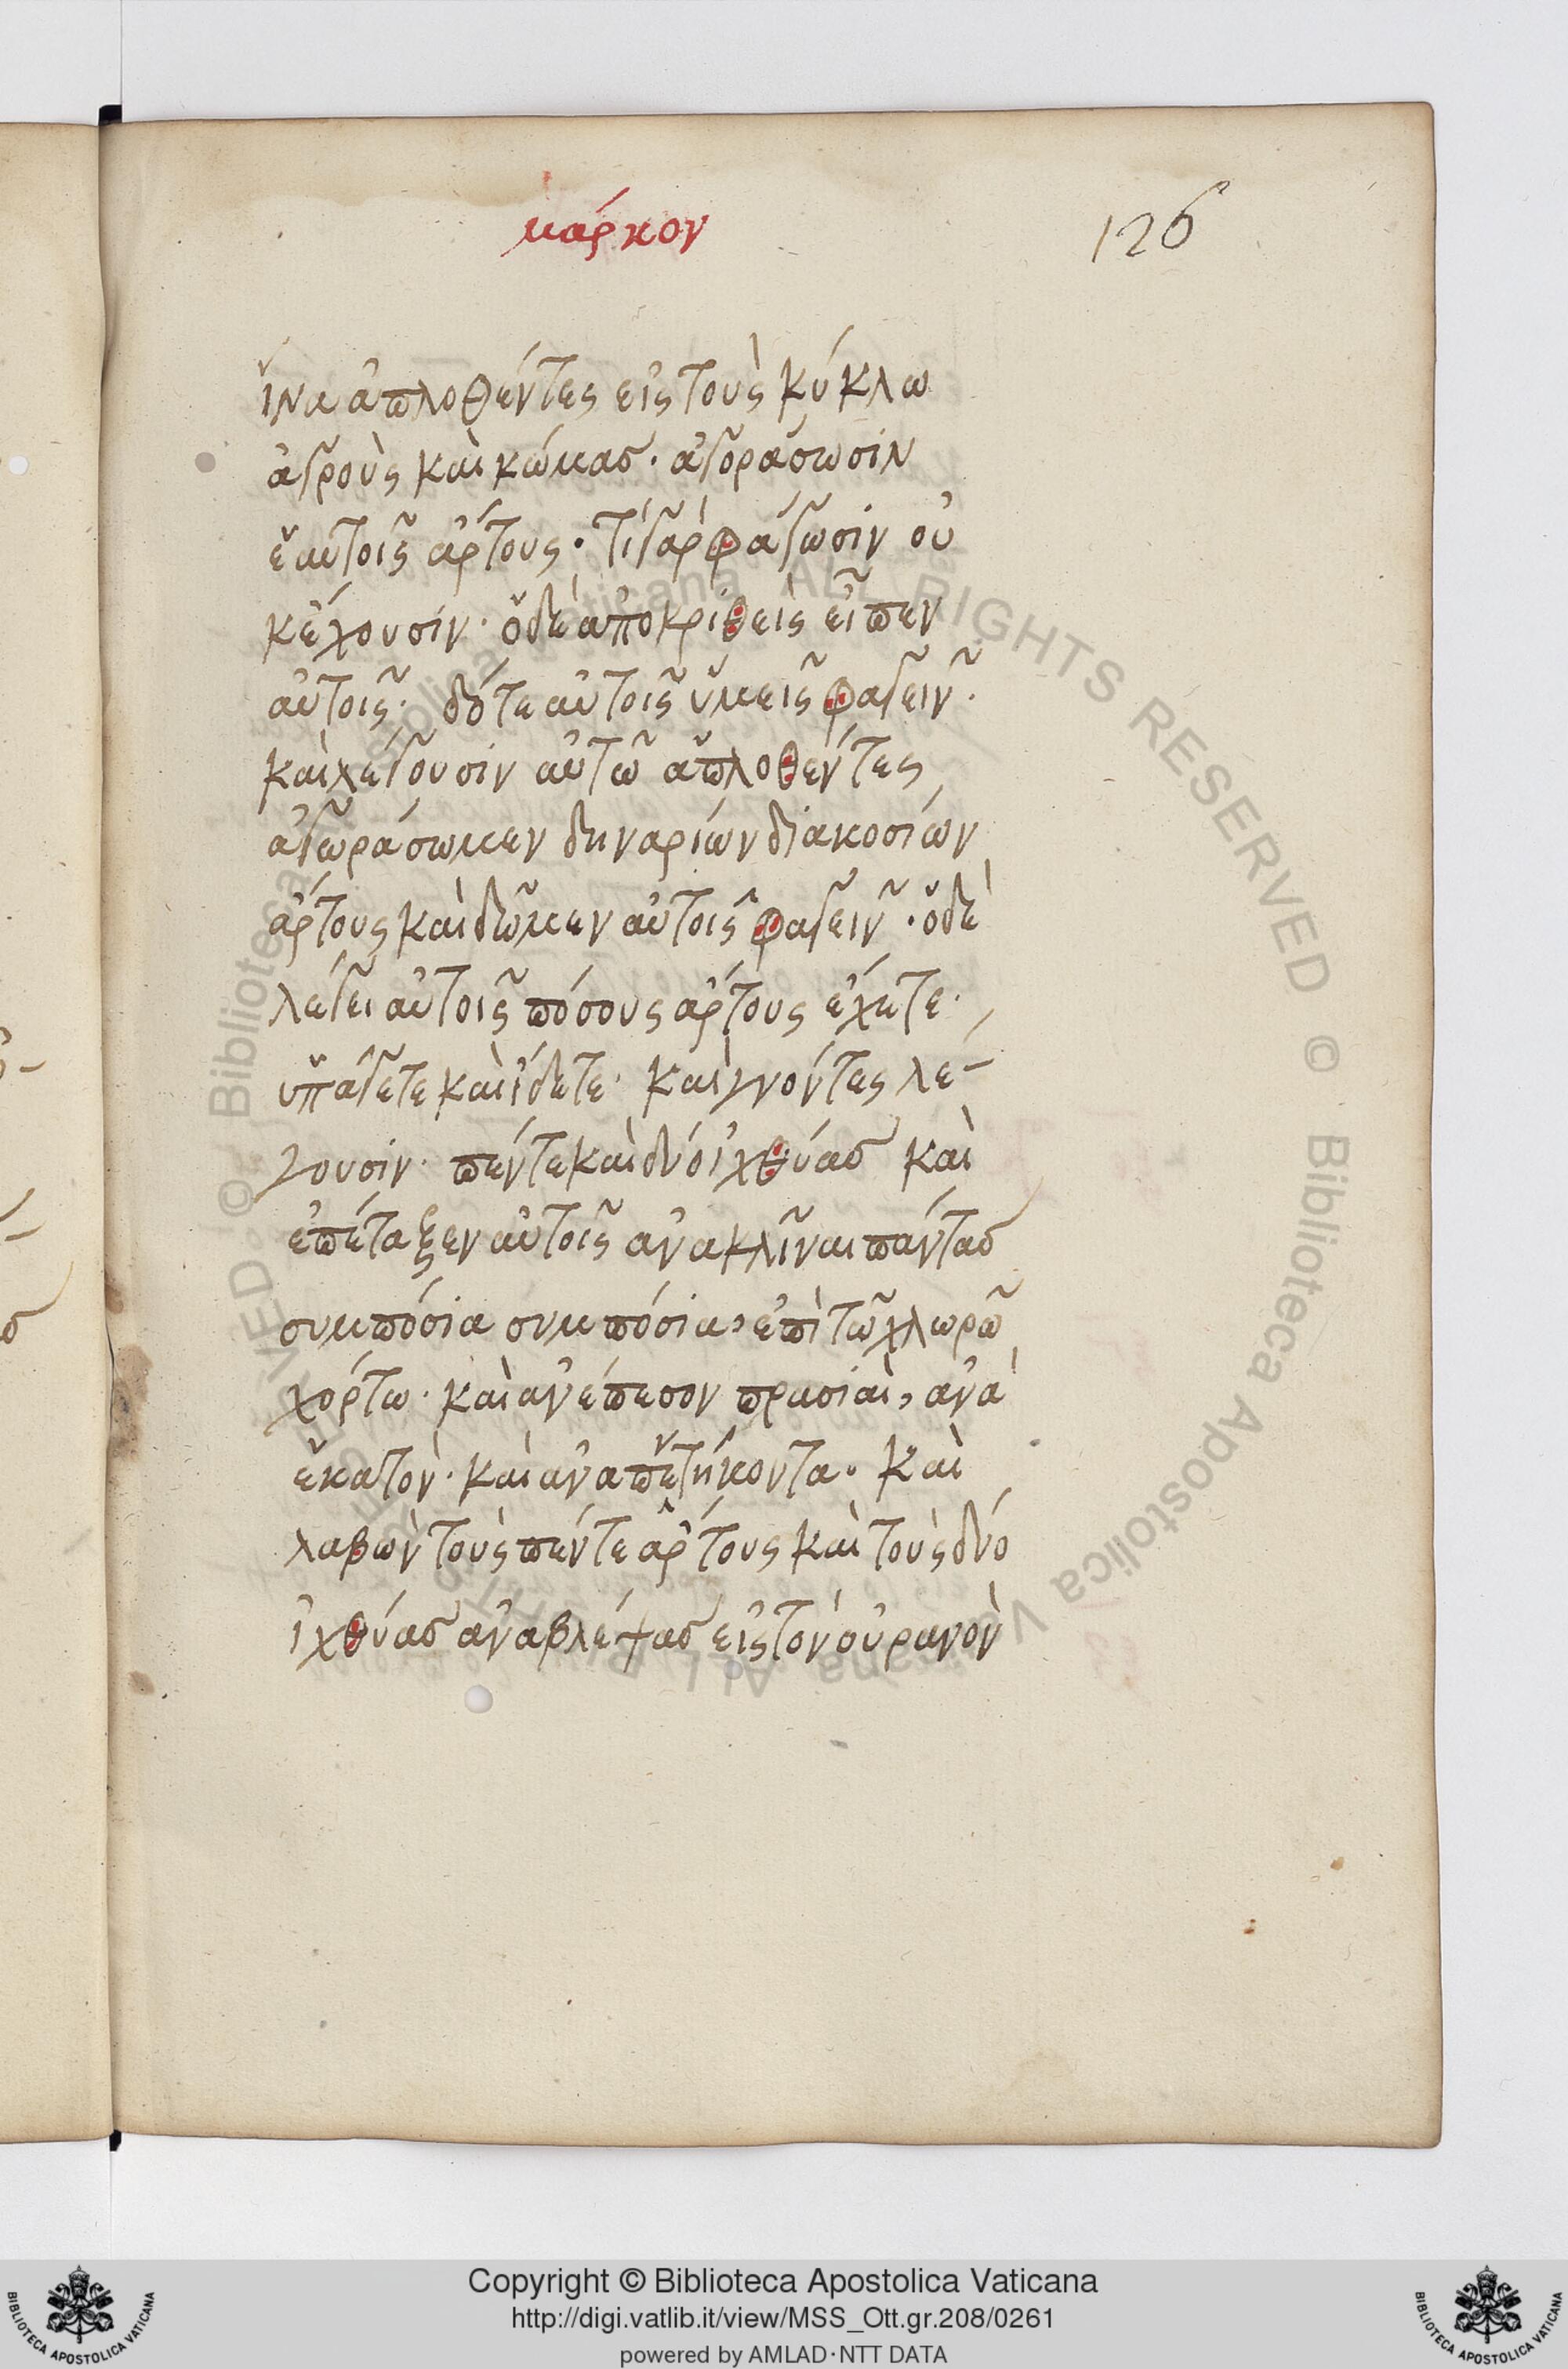 μάρκον
126
ἵνα ἀπλοθέντες εἰς τοὺς κύκλω
ἀγροὺς καὶ κώμασ· ἀγοράσωσιν
ἑαυτοῖς ἄρτους· τί γὰρ φάγωσιν οὐ
κἔχουσιν· ὁ δὲ ἀποκριθεὶς εἶπεν
αὐτοῖς· δότε αὐτοῖς ὑμεῖς φαγεῖν·
καὶ λέγουσιν αὐτῶ ἀπλοθέντες
ἀγωράσωμεν δηναρίων διακοσίων
ἄρτους καὶ δῶμεν αὐτοῖς φαγεῖν· ὁ δὲ
λέγει αὐτοῖς πόσους ἄρτους ἔχητε·
ὑπάγετε καὶ ἴδετε· καὶ γνόντες λέ-
γουσιν· πέντε καὶ δύο ἰχθύασ καὶ
ἐπέταξεν αὐτοῖς ἀνακλῖναι πάντασ
συμπόσια συμπόσια, ἐπὶ τῶ χλωρῶ
χόρτω· καὶ ἀνέπεσον πρασιαὶ, ἀνὰ
ἑκατὸν· καὶ ἀνα πεντήκοντα· καὶ
λαβὼν τοὺς πέντε ἄρτους καὶ τοὺς δύο
ἰχθύασ ἀναβλέψασ εἰς τὸν οὐρανὸν
Copyright © Biblioteca Apostolica Vaticana
http://digi.vatlib.it/view/MSS_Ott.gr.208/0261
powered by AMLAD·NTT DATA
BIBLIOTECA APOSTOLICA VATICANA
BIBLIOTECA APOSTOLICA VATICANA